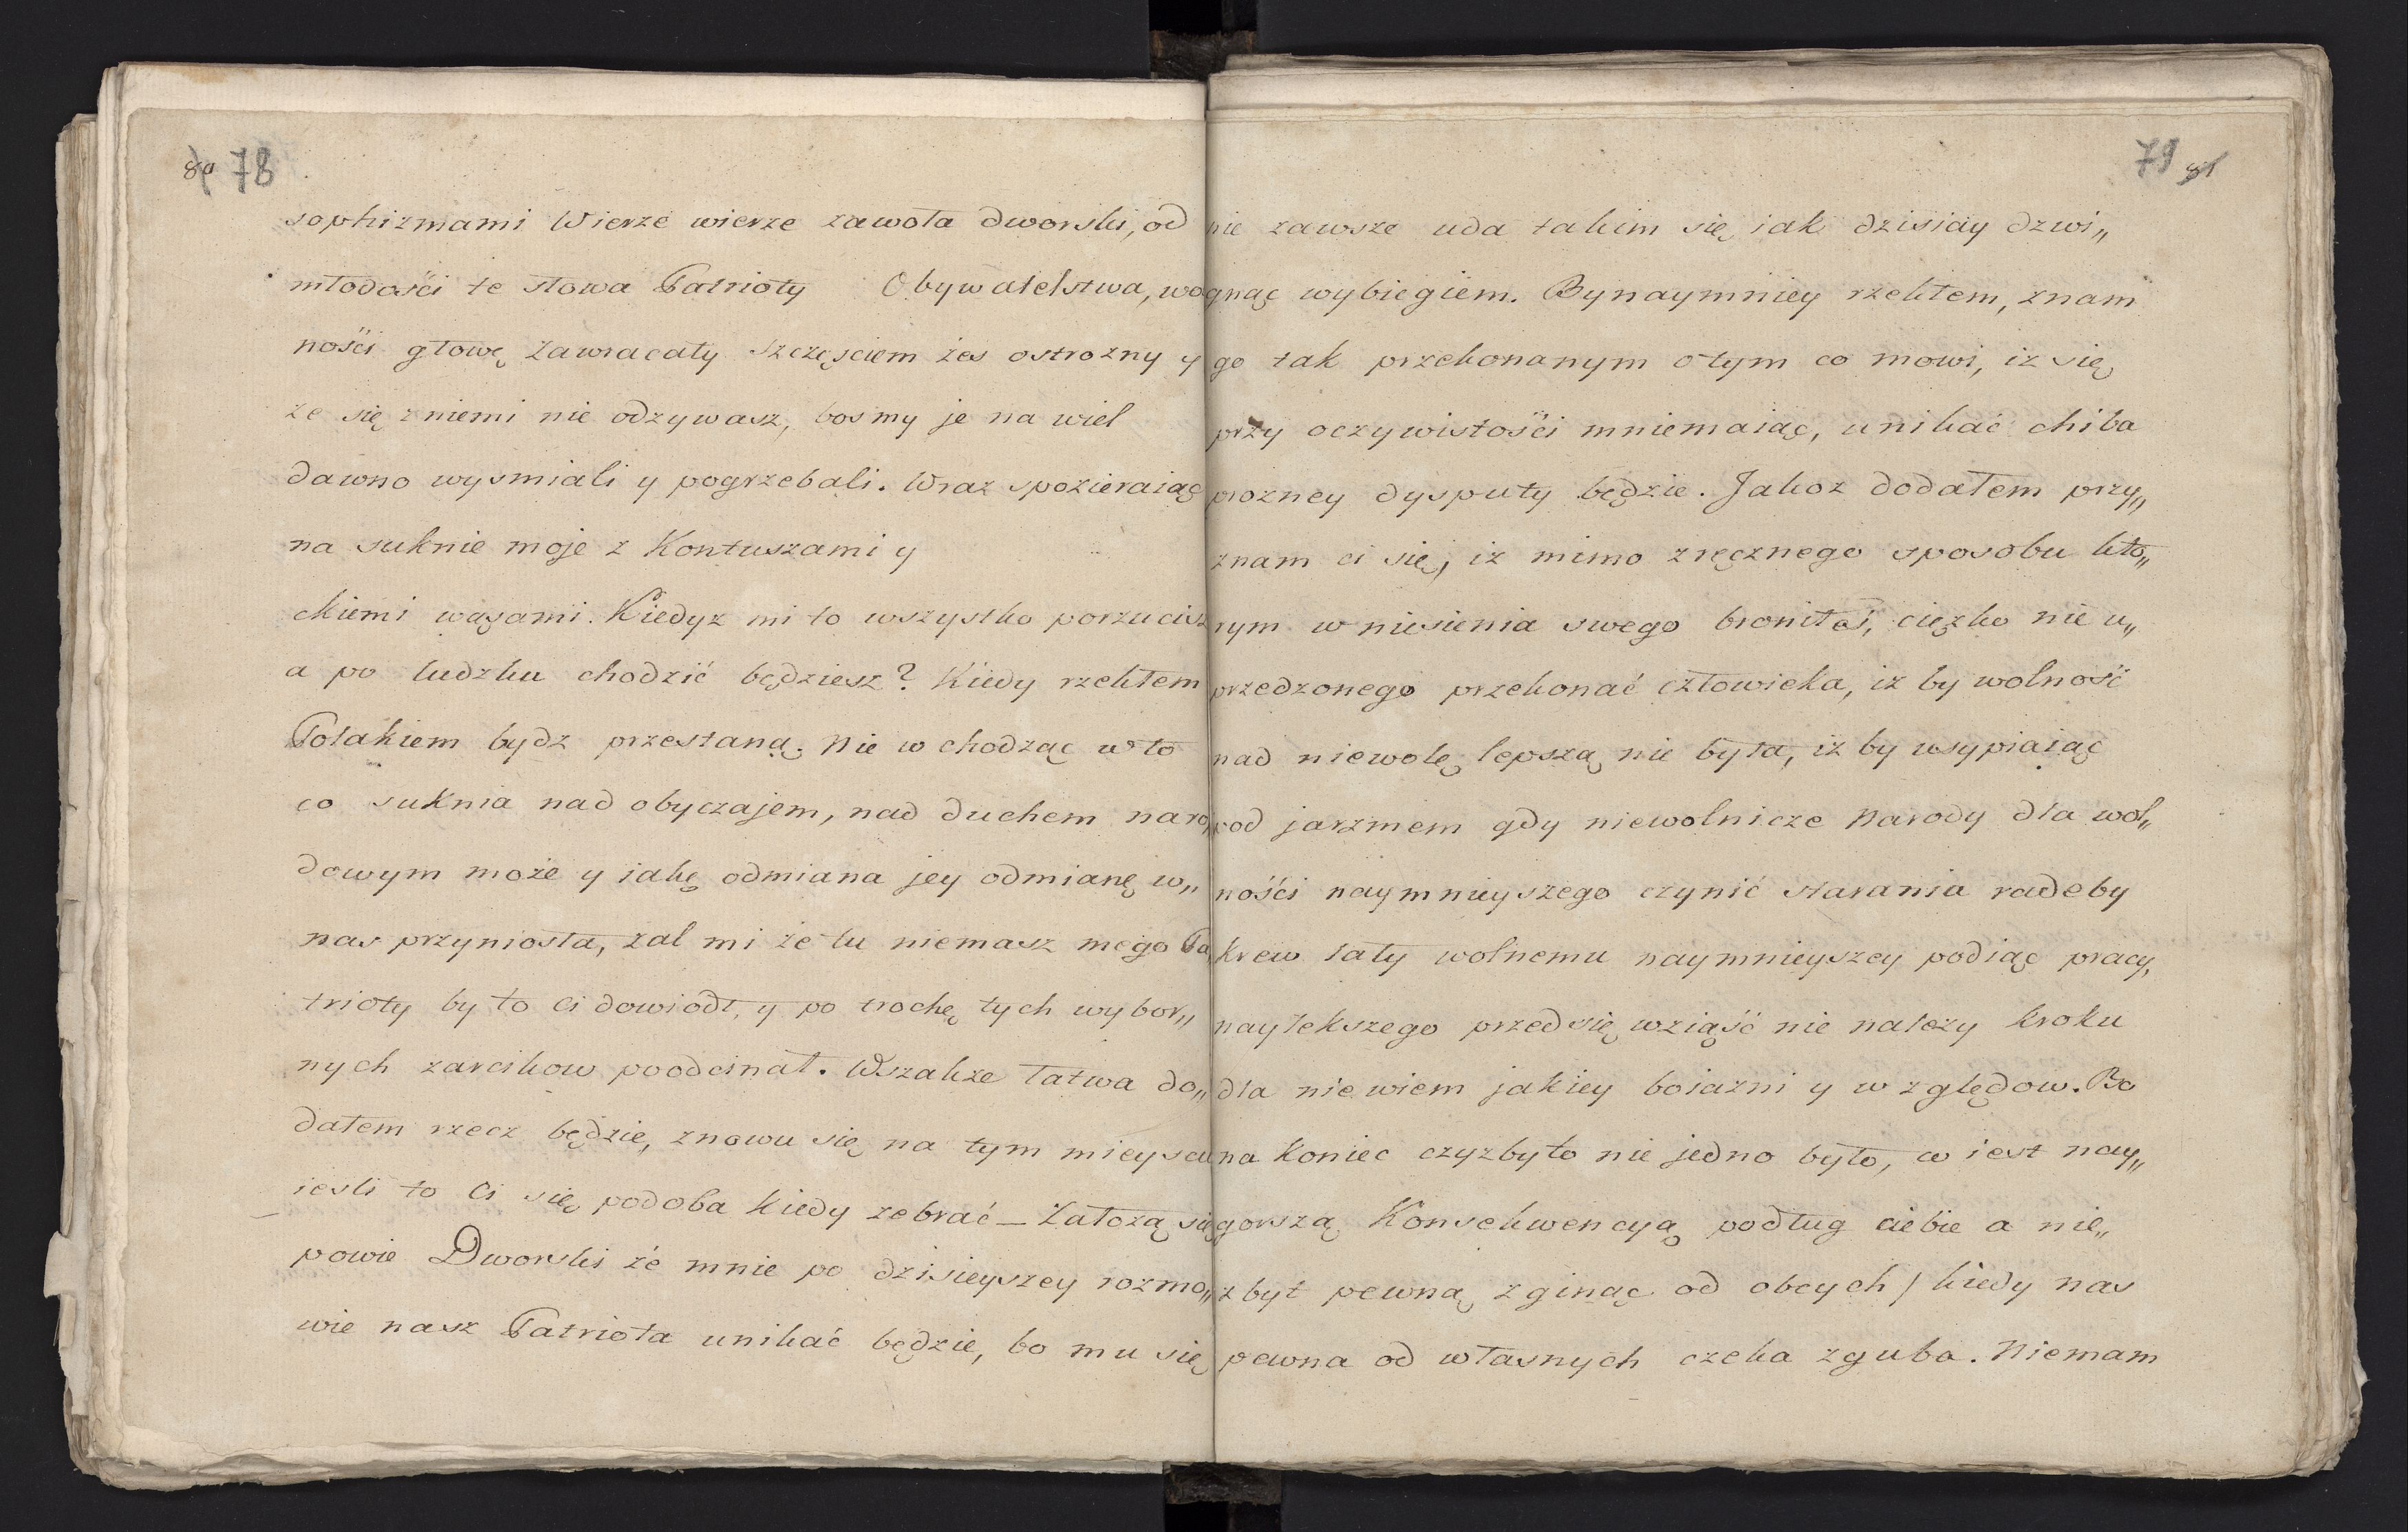 80 78
sophizmami Wierzé wierze zawoła dworski, od
młodości te słowa Patrioty Obywatelstwa, wo
ności głowę zawracały szczęsciem żes ostrozny y
ze się z niemi nie odzywasz, bosmy je na wiel
dawno wysmiali y pogrzebali. Wraz spozieraiąc
na suknie moje z Kontuszami y
ckiemi wąsami. Kiedyz mi to wszystko porzucisz
a po ludzku chodzić będziesz? Kiedy rzekłem
Polakiem bydz przestanę. Nie w chodząc w to
co suknia nad obyczajem, nad duchem naro„
dowym może y iakę odmiana jey odmianę w„
nas przyniosła, zal mi że tu niemasz mego Pa„
trioty by to ci dowiodł, y po trochę tych wybor„
nych zarcikow poodcinał. Wszakze łatwa do„
dałem rzecz będzie, znowu się na tym mieyscu
iesli to ci się podoba kiedy zebrać _ Załozą się
powie Dworski zé mnie po dzisieyszey rozmo„
wie nasz Patriota unikać będzie, bo mu się
79 81
nie zawsze uda takim się iak dzisiay dzwi„
gnąc wybiegiem. Bynaymniey rzekłem, znam
go tak przekonanym o tym co mowi, iz się
przy oczywistości mniemaiąc, unikać chiba
prozney dysputy będzie. Jakoz dodałem przy„
znam ci się, iz mimo zręcznego sposobu kto„
rym w niesienia swego broniłeś, cięzko nie u„
przedzonego przekonać człowieka, iz by wolność
nad niewolę lepszą nie była, iz by usypiaiąc
pod jarzmem gdy niewolnicze Narody dla wol„
ności naymnieyszego czynić starania radeby
krew lały wolnemu naymnieyszey podiąc pracy,
naylekszego przedsię wziąść nie nalezy kroku
dla nie wiem jakiey boiazni y w zględow. Bo
na koniec czyzbyło nie jedno było, co iest nay„
gorszą Konsekwencyą podług ciebie a nie„
zbyt pewną zginąc od obcych / kiedy nas
pewna od własnych czeka zguba. Niemam